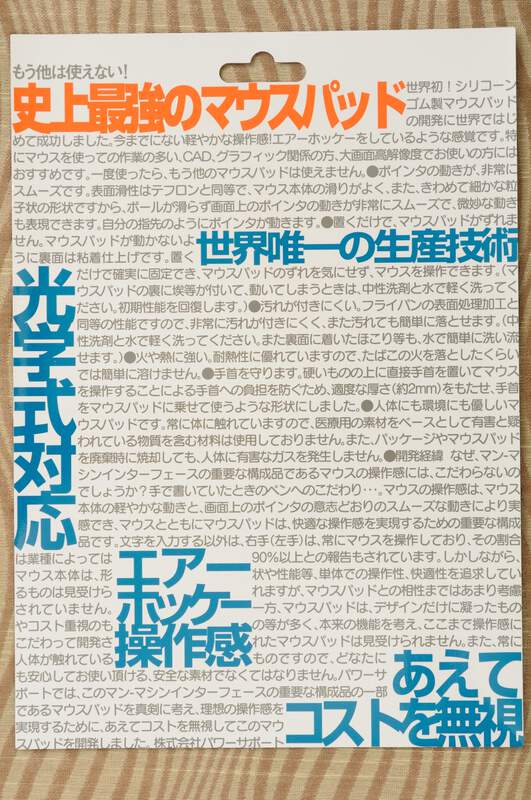 もう他は使えない!
史上最強のマウスパッド
世界初！シリコーン
ゴム製マウスパッド
の開発に世界ではじ
めて成功しました。今までにない軽やかな操作感!エアーホッケーをしているような感覚です。特
にマウスを使っての作業の多い、CAD、グラフィック関係の方、大画面高解像度でお使いの方には
おすすめです。一度使ったら、もう他のマウスパッドは使えません。●ポインタの動きが、非常に
スムーズです。表面滑性はテフロンと同等で、マウス本体の滑りがよく、また、きわめて細かな粒
子状の形状ですから、ボールが滑らず画面上のポインタの動きが非常にスムーズで、微妙な動き
も表現できます。自分の指先のようにポインタが動きます。●置くだけで、マウスパッドがずれま
せん。マウスパッドが動かないよ
うに裏面は粘着仕上げです。置く
世界唯一の生産技術
だけで確実に固定でき、マウスパッドのずれを気にせず、マウスを操作できます。(マ
ウスパッドの裏に埃等が付いて、動いてしまうときは、中性洗剤と水で軽く洗ってく
ださい。初期性能を回復します。)●汚れが付きにくい。フライパンの表面処理加工と
同等の性能ですので、非常に汚れが付きにくく、また汚れても簡単に落とせます。(中
性洗剤と水で軽く洗ってください。また裏面に着いたほこり等も、水で簡単に洗い流
せます。)●火や熱に強い。耐熱性に優れていますので、たばこの火を落としたくらい
では簡単に溶けません。●手首を守ります。硬いものの上に直接手首を置いてマウス
を操作することによる手首への負担を防ぐため、適度な厚さ(約2mm)をもたせ、手首
をマウスパッドに乗せて使うような形状にしました。●人体にも環境にも優しいマ
ウスパッドです。常に体に触れていますので、医療用の素材をベースとして有害と疑
われている物質を含む材料は使用しておりません。また、パッケージやマウスパッド
を廃棄時に焼却しても、人体に有害なガスを発生しません。●開発経緯 なぜ、マン-マ
シンインターフェースの重要な構成品であるマウスの操作感には、こだわらないの
でしょうか?手で書いていたときのペンへのこだわり・・・。マウスの操作感は、マウス
本体の軽やかな動きと、画面上のポインタの意志どおりのスムーズな動きにより実
感でき、マウスとともにマウスパッドは、快適な操作感を実現するための重要な構成
品です。文字を入力する以外は、右手(左手)は、常にマウスを操作しており、その割合
光学式対応
は業種によっては 90%以上との報告もされています。しかしながら、
マウス本体は、形状や性能等、単体での操作性、快適性を追求してい
るものは見受けられますが、マウスパッドとの相性まではあまり考慮
されていません。一方、マウスパッドは、デザインだけに凝ったもの
やコスト重視のもの等が多く、本来の機能を考え、ここまで操作感に
こだわって開発されたマウスパッドは見受けられません。また、常に
人体が触れているものですので、どなたに
エアー
ホッケー
操作感
も安心してお使い頂ける、安全な素材でなくてはなりません。パワーサ
ポートでは、このマン-マシンインターフェースの重要な構成品の一部
であるマウスパッドを真剣に考え、理想の操作感を
実現するために、あえてコストを無視してこのマウ
スパッドを開発しました。株式会社パワーサポート
あえて
コストを無視